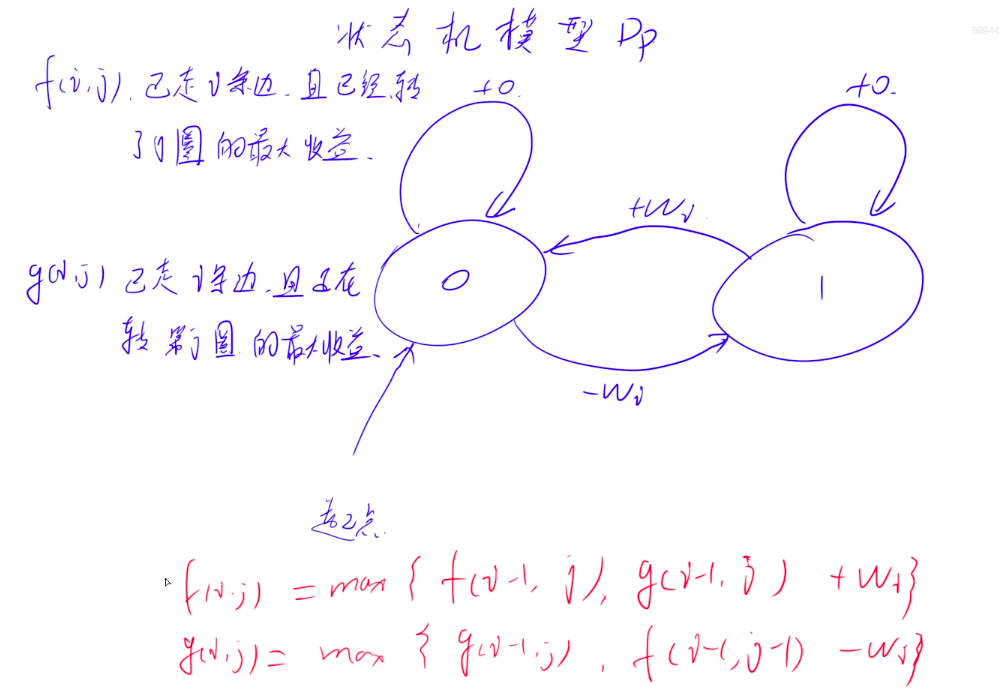 状态机模型 Dp
f(i,j). 已走i条边. 且已经转
了j圈的最大收益.
g(i,j) 已走i条边. 且正在
转第j圈的最大收益.
+0.
+0.
+Wi
0
1
-Wi
起点.
f(i,j) = max { f(i-1, j), g(i-1, j) + Wi}
g(i,j) = max { g(i-1,j), f(i-1,j-1) - Wi}
88844